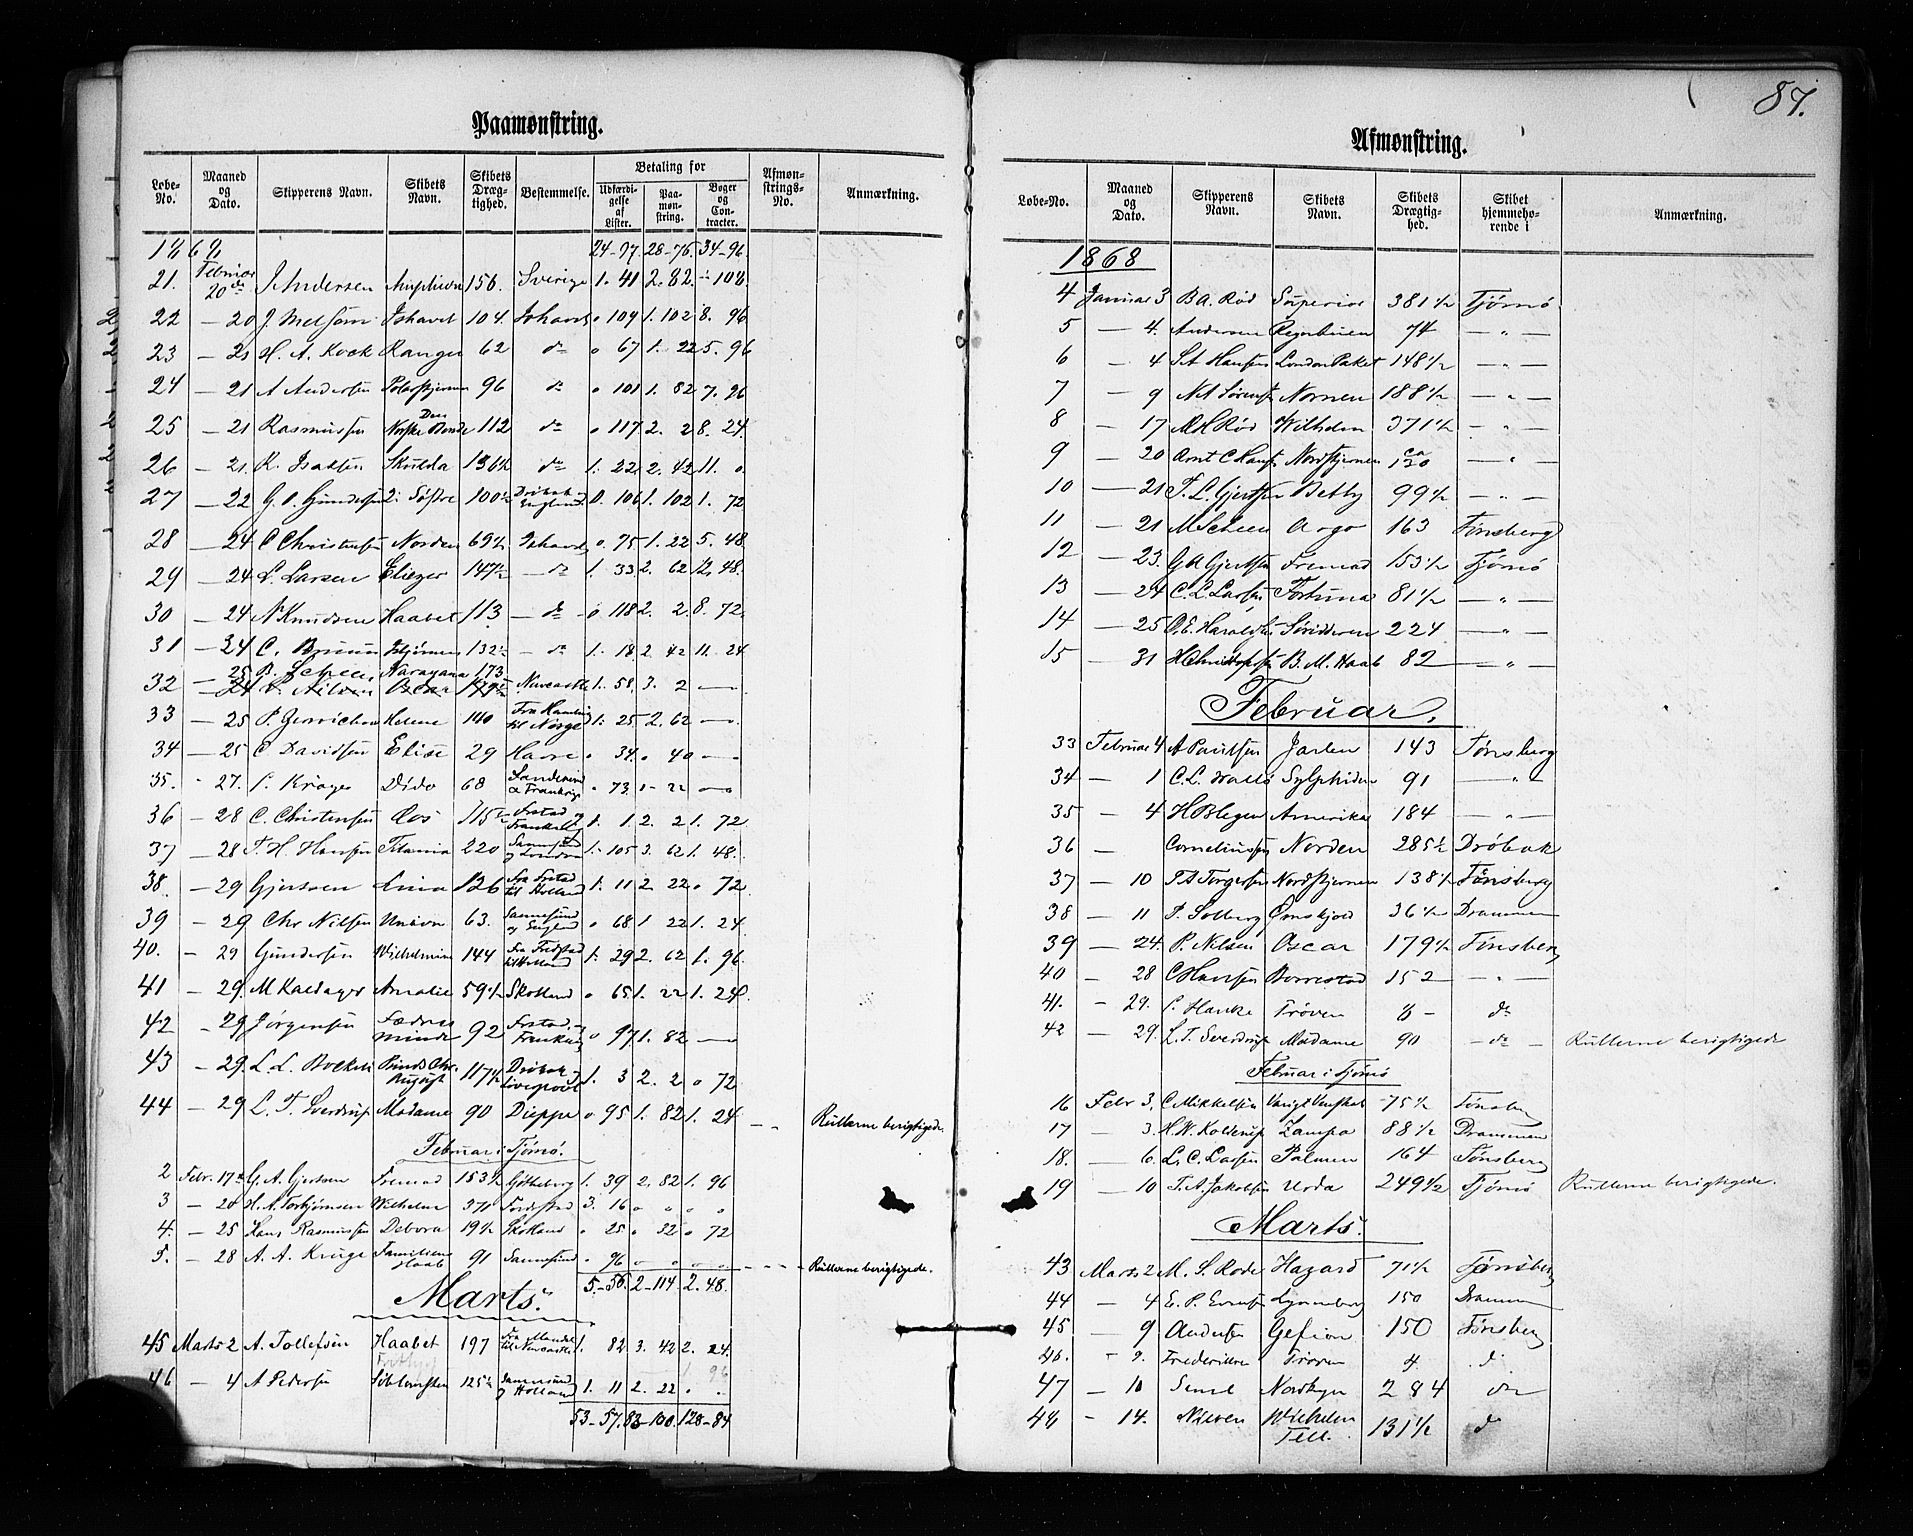 87.
Paamønstring.
Løbe-No. Maaned og Dato. Skipperens Navn. Skibets Navn. Skibets Dræg-tighed. Bestemmelse. Betaling for Udfærdigelse af Lister. Paa-møn-string. Bøger og Con-tracter. Afmøn-strings-No. Anmærkning.
24-97. 28-76. 34-96.
21. Februar 20de J Andersen Amphion 156. Sverige 1. 41 2. 82. 108
22 — 20 J. Melsom Ishavet 104. Ishavet o 109 1. 102 8. 96
23 — 21 H. A. Kock Ranger 62 do o 67 1. 22 5. 96
24 — 21 A Andersen Polarstjernen 96 do o 101 1. 82 7. 96
25 — 21 Rasmussen Den Norske Bonde 112 do o 117 2. 2 8. 24.
26 — 21 K. Isaksen Skulda 136½ do 1. 22 2. 42 11. o
27 — 22 G. O. Gundersen 2 Søstre 100½ Drøbak England 0. 106 1. 102 1. 72
28 — 24 C Christensen Norden 69½ Ishavet o. 75 1. 22 5. 48
29 — 24 L. Larsen Eliezer 147½ — do 1. 33 2. 62 12. 48.
30 — 24 N Knudsen Haabet 113 — do — o 118 2. 2. 8. 72
31 — 24 C. Bruun 132½ — do 1. 18 2. 42 11. 24
— 25 B. Scheen Narayana 173
32 — 24 P. Nilsen Oscar 179½ Newcastle 1. 58. 3. 2 —
33 — 25 P. Helene 140 Fra Hamburg til Norge 1. 25. 2. 62 —
34 — 25 C. Davidsen Elise 29 Havre o 34. o 40 —
35. - 27. Krøger Dido 68 Sandesund & Frankrige o 73. o 22 —
36 — 28 C. Christensen Oos 115½ Frstad Frankrig 1. 1. 2. 2 1. 72
37 — 28 T. H. Hansen Titania 220 Sannesund og London 1. 105 3. 62 1. 48.
38. — 29 Gjersøen Lina 126 Fra Frstad til Holland 1. 11 2 22 o 72
39 — 29 Chr Nilsen Union 63. Sannesund og England o 68 1 22 1. 24.
40. — 29 Gundersen Wilhelmine 144 Fra Fredstad til Holland 1. 29 2. 62 1. 96
41 — 29. M Kaldager Amalie 59½ Skotland o 65 1. 22 1. 24
42 — 29 Jørgensen Fædres Minde 92 Frstad Frankrig o 97 1. 82 —
43 — 29. L. L. Bolksen Bernds Chr. August 117½ Drøbak Liverpool 1. 3 2. 2 o 72
44 — 29 L. T. Sverdrup Madame 90 Dieppe o 95 1. 82 1. 24 — — Rullerne berigtigede.
Februar i Tjømø.
2 Febr. 17de G. A. Gjertsen Fremad 153½ Gøtheborg 1. 39 2. 82 1. 96
3 — 20 H. A. Torbjørnsen Wilhelm 371 Fredstad 3. 16 o o o o
4. — 25 Hans Rasmussen Debora 19½ Skotland o 25 o 32 o 72
5. — 28 A. A. Kruge Familiens Haab 91 Sannesund o 96 o o o o — — — Rullerne berigtigede.
5.-56. 2-114 2. 48.
Marts.
45 Marts 2 A. Tollefsen Haabet 197 Fra Mandal til Newcastle 1. 82 3. 42 2. 24.
46 — 4 A Pedersen 125½ Sannesund og Holland 1. 11 2. 22 o
53-57. 83-100. 128-84
Afmønstring.
Løbe-No. Maaned og Dato. Skipperens Navn. Skibets Navn. Skibets Drægtig-hed. Skibet hjemmehø-rende i Anmærkning.
1868
4 Januar 3 B A. Rød Superior 381½ Tjømø
5 — 4. Andersen Regnbuen 74 — „ —
6 — 4 S A Hansen London Paket 148½ — „ —
7 — 9 N A Sørensen Nornen 188½ — „ —
8 — 17 Rød Wilhelm 371½ — „ —
9 — 20 Arnt C Hansen Nordstjernen ca 120 — „
10 — 21 T. L. Gjertsen Betty 99½ — „ —
11 — 21 M Scheen Argo 163 Tønsberg
12 — 23. G A Gjertsen Fremad 153½ Tjømø
13 — 24 C. L. Larsen Fortuna 81½ — „ —
14 — 25 O. E. Haraldsen Søridderen 224 — „ —
15 — 31 H Christophersen B. M. Haab 82 — „ —
Februar.
33 Februar 4 A Paulsen Jarlen 143 Tønsberg
34 — 1 C. L. Wallø Sylphiden 91 — „
35 — 4 H Blegen Amerika 184 — „ —
36 — Corneliussen Norden 285½ Drøbak
37 — 10 T A Torgersen Nordstjernen 138½ Tønsberg
38 — 11 P. Solberg Ørnskjold 36½ Drammen
39 — 24. P. Nilsen Oscar 179½ Tønsberg
40 — 28 C Hansen Borrestad 152 — „ —
41. - 29. Hanke Prøven 8 — do
42 — 29. L. T. Sverdrup Madame 90 — do — Rullerne berigtigede
Februar i Tjømø
16 Febr 3. C. Mikkelsen Varigt Venskab 75½ Tønsberg
17 — 3. H. W. Kolderup Zampa 88½ Drammen
18. — 6. L. C. Larsen Palmen 164 Tønsberg
19 — 10 T. A. Jakobsen Urda 249½ Tjømø Rullerne berigtigede.
Marts.
43 Marts 2 M. S. Rode Hazard 71½ Tønsberg
44 — 4 E. P. Evensen 150 Drammen
45 — 9 Andersen Gefion 150 Tønsberg
46. - 9. Frederiksen Prøven 4 do
47 — 10 Nordkyn 284 do
48 - 14. Nilsen Wilhelm Tell. 131½ do